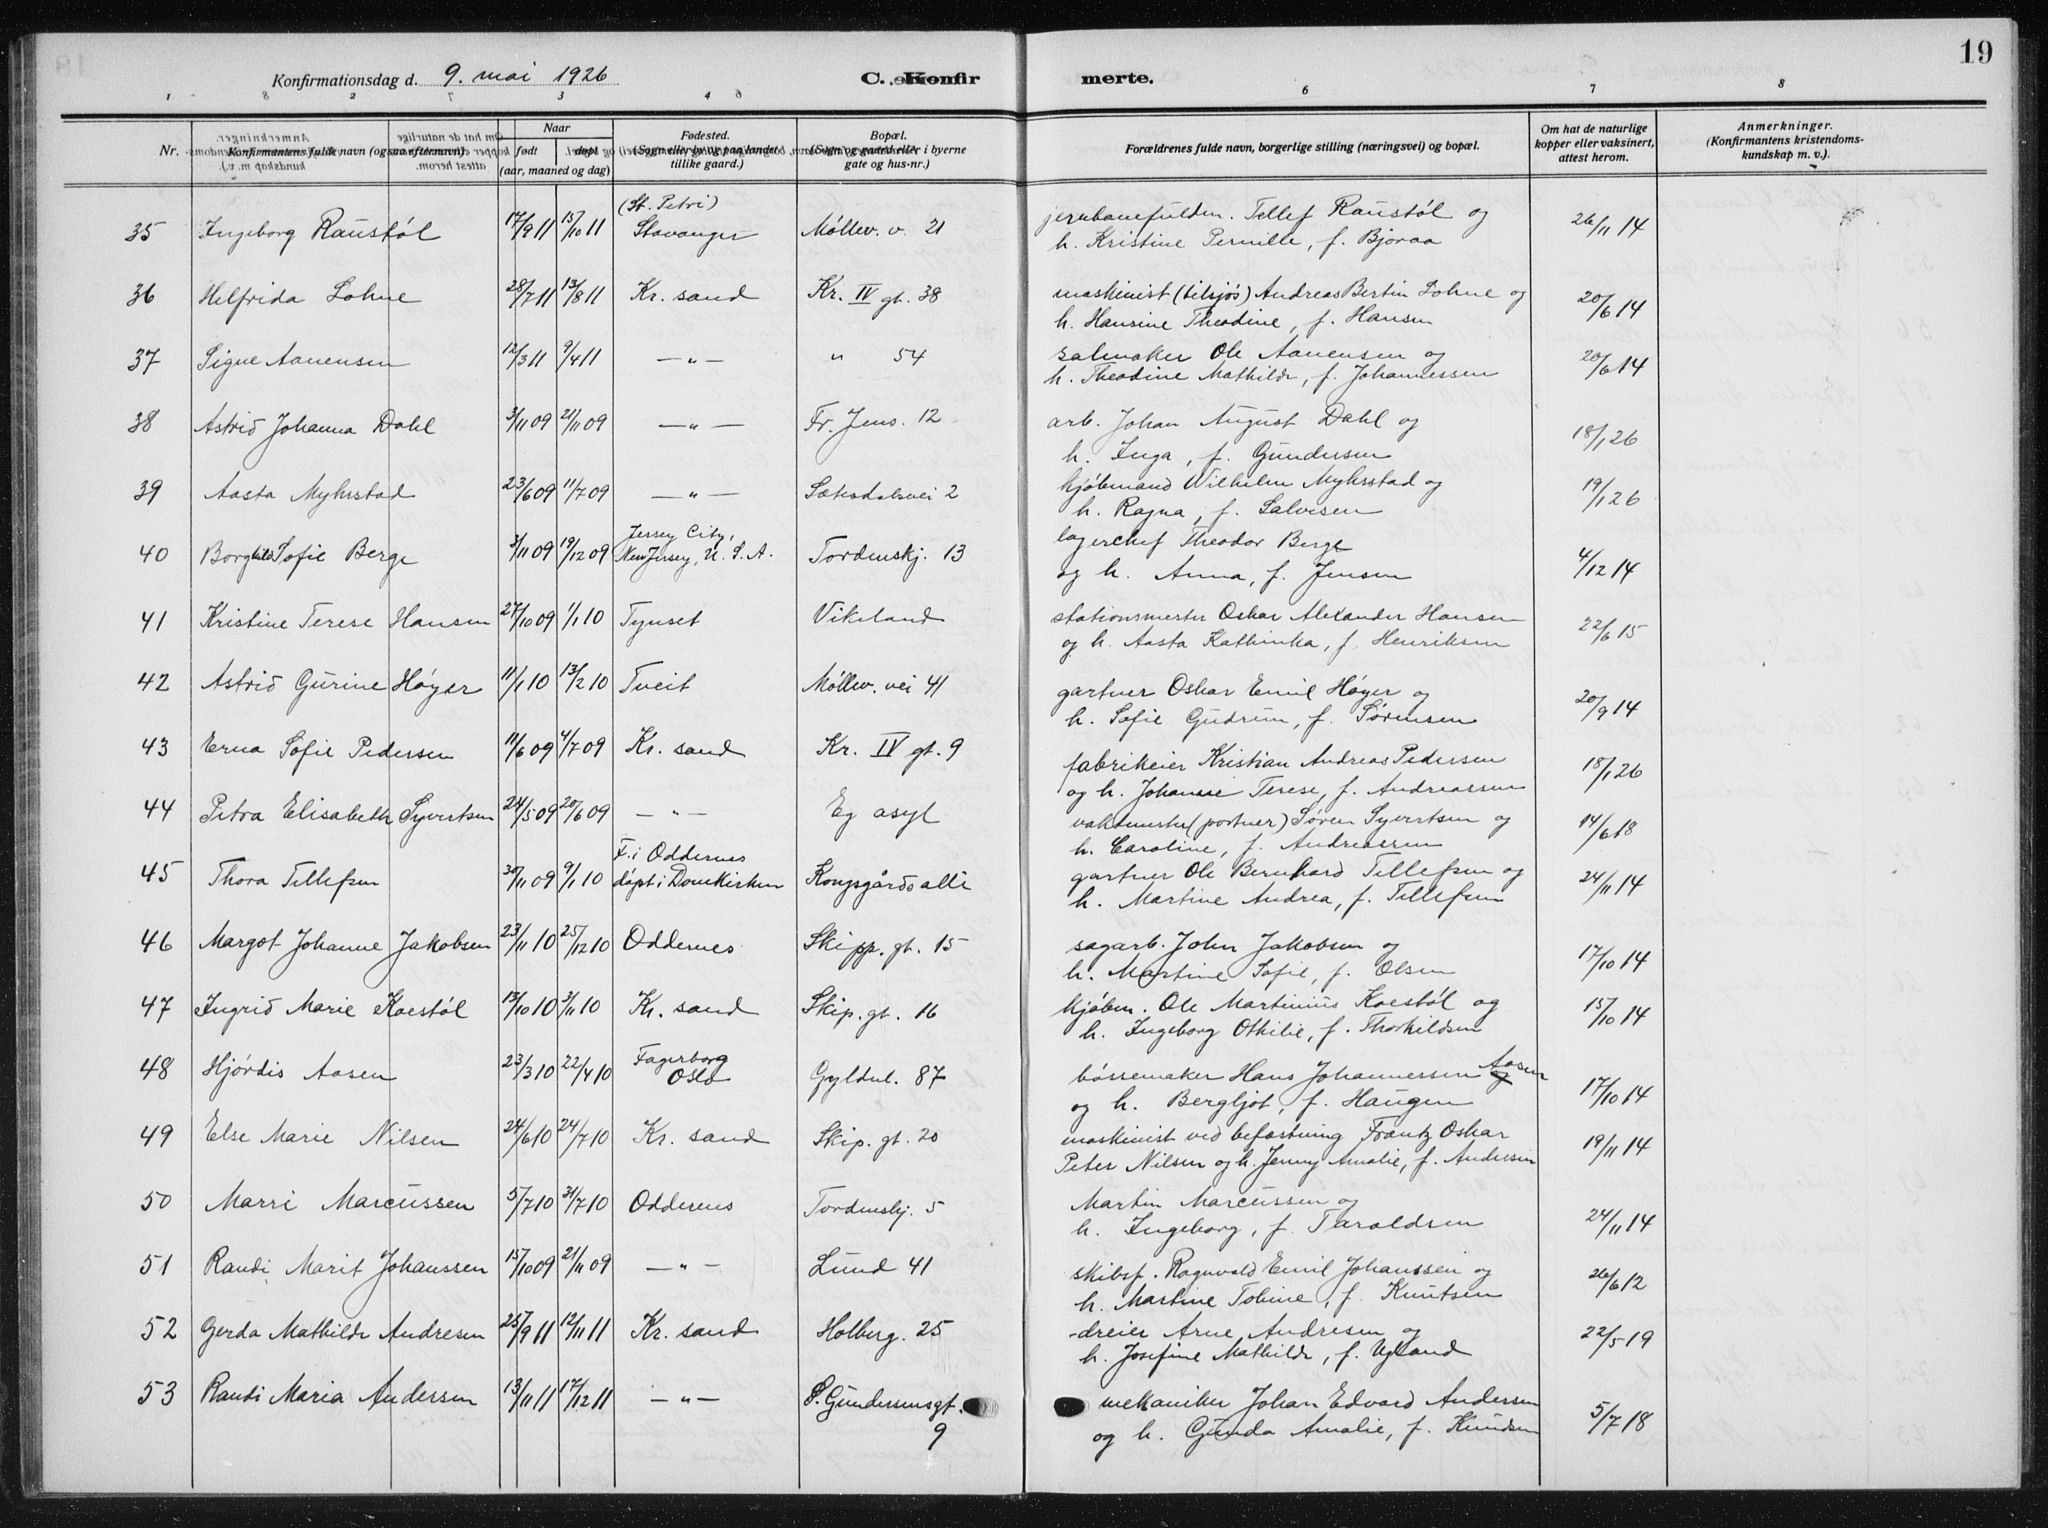 19
Konfirmationsdag d. 9. mai 1926 C. Konfirmerte.
1 2 3 4 6 7 8
Nr. Konfirmantens fulde navn (ogsaa efternavn) Naar født døpt (aar, maaned og dag) Fødested. (Sogn eller by og paa landet tillike gaard.) Bopæl. (Sogn og gaard eller i byerne gate og hus-nr.) Forældrenes fulde navn, borgerlige stilling (næringsvei) og bopæl. Om hat de naturlige kopper eller vaksinert, attest herom. Anmerkninger. (Konfirmantens kristendoms-kundskap m. v.).
35 Ingeborg Raustøl 17/9 11 15/10 11 (St. Petri) Stavanger Møllev. v. 21 jernbanefuldm. Tellef Raustøl og 26/11 14
h. Kristine Pernille, f. Bjoraa
36 Helfrida Lohne 28/7 11 13/8 11 Kr. sand Kr. IV gt. 38 maskinist (tilsjøs) Andreas Bertin Lohne og 20/6 14
h. Hansine Theodine, f. Hansen
37 Signe Aanensen 12/3 11 9/4 11 — „ — „ 54 salmaker Ole Aanensen og 20/6 14
h. Theodine Mathilde, f. Johannessen
38 Astrid Johanna Dahl 3/11 09 21/11 09 — „ — Fr. Jens. 12 arb. Johan August Dahl og 18/1 26
h. Inga, f. Gundersen
39 Aasta Myhrstad 23/6 09 11/7 09 — „ — Sætesdalsvei 2 kjøbmand Wilhelm Myhrstad og 19/1 26
h. Ragna, f. Salvesen
40 Borghild Sofie Berge 3/11 09 19/12 09 Jersey City, New Jersey, U. S. A. Tordenskj. 13 lagerchef Theodor Berge 4/12 14
og h. Anna, f. Jensen
41 Kristine Terese Hansen 27/10 09 1/1 10 Tynset Vikeland stationsmester Oskar Alexander Hansen 22/6 15
og h. Aasta Kathinka, f. Henriksen
42 Astrid Gurine Høyer 11/1 10 13/2 10 Tveit Møllev. vei 41 gartner Oskar Emil Høyer og 20/9 14
h. Sofie Gudrun, f. Sørensen
43 Erna Sofie Pedersen 11/6 09 4/7 09 Kr. sand Kr. IV gt. 9 fabrikeier Kristian Andreas Pedersen 18/1 26
og h. Johanne Terese, f. Andreassen
44 Petra Elisabeth Syvertsen 24/5 09 20/6 09 — „ — Eg asyl vaktmester (portner) Søren Syvertsen og 14/6 18
h. Caroline, f. Andreassen
45 Thora Tellefsen 30/11 09 9/1 10 F. i Oddernes døpt i Domkirken Kongsgårds alle gartner Ole Bernhard Tellefsen og 24/11 14
h. Martine Andrea, f. Tellefsen
46 Margot Johanne Jakobsen 23/11 10 25/12 10 Oddernes Skipp. gt. 15 sagarb. John Jakobsen og 17/10 14
h. Martine Sofie, f. Olsen
47 Ingrid Marie Koestøl 13/10 10 3/11 10 Kr. sand Skip. gt. 16 kjøbm. Ole Martinius Koestøl og 15/10 14
h. Ingeborg Othilie, f. Thorkildsen
48 Hjørdis Aasen 23/3 10 22/4 10 Fagerborg Oslo Gyldnl. 87 bøssemaker Hans Johannessen Aasen 17/10 14
og h. Bergljot, f. Haugen
49 Else Marie Nilsen 24/6 10 24/7 10 Kr. sand Skip. gt. 20 maskinist ved befæstning Frantz Oskar 19/11 14
Peter Nilsen og h. Jenny Amalie, f. Andersen
50 Marri Marcussen 5/7 10 31/7 10 Oddernes Tordenskj. 5 Martin Marcussen og 24/11 14
h. Ingeborg, f. Taraldsen
51 Randi Marit Johanssen 15/10 09 21/11 09 — „ — Lund 41 skibsf. Ragnvald Emil Johanssen og 26/6 12
h. Martine Tobine, f. Knutsen
52 Gerda Mathilde Andresen 25/9 11 12/11 11 Kr. sand Holberg. 25 dreier Arne Andresen og 22/5 19
h. Josefine Mathilde, f. Ugland
53 Randi Maria Andersen 13/11 11 17/12 11 — „ — P. Gundersensgt. 9 mekaniker Johan Edvard Andersen 5/7 18
og h. Gunda Amalie, f. Knudsen